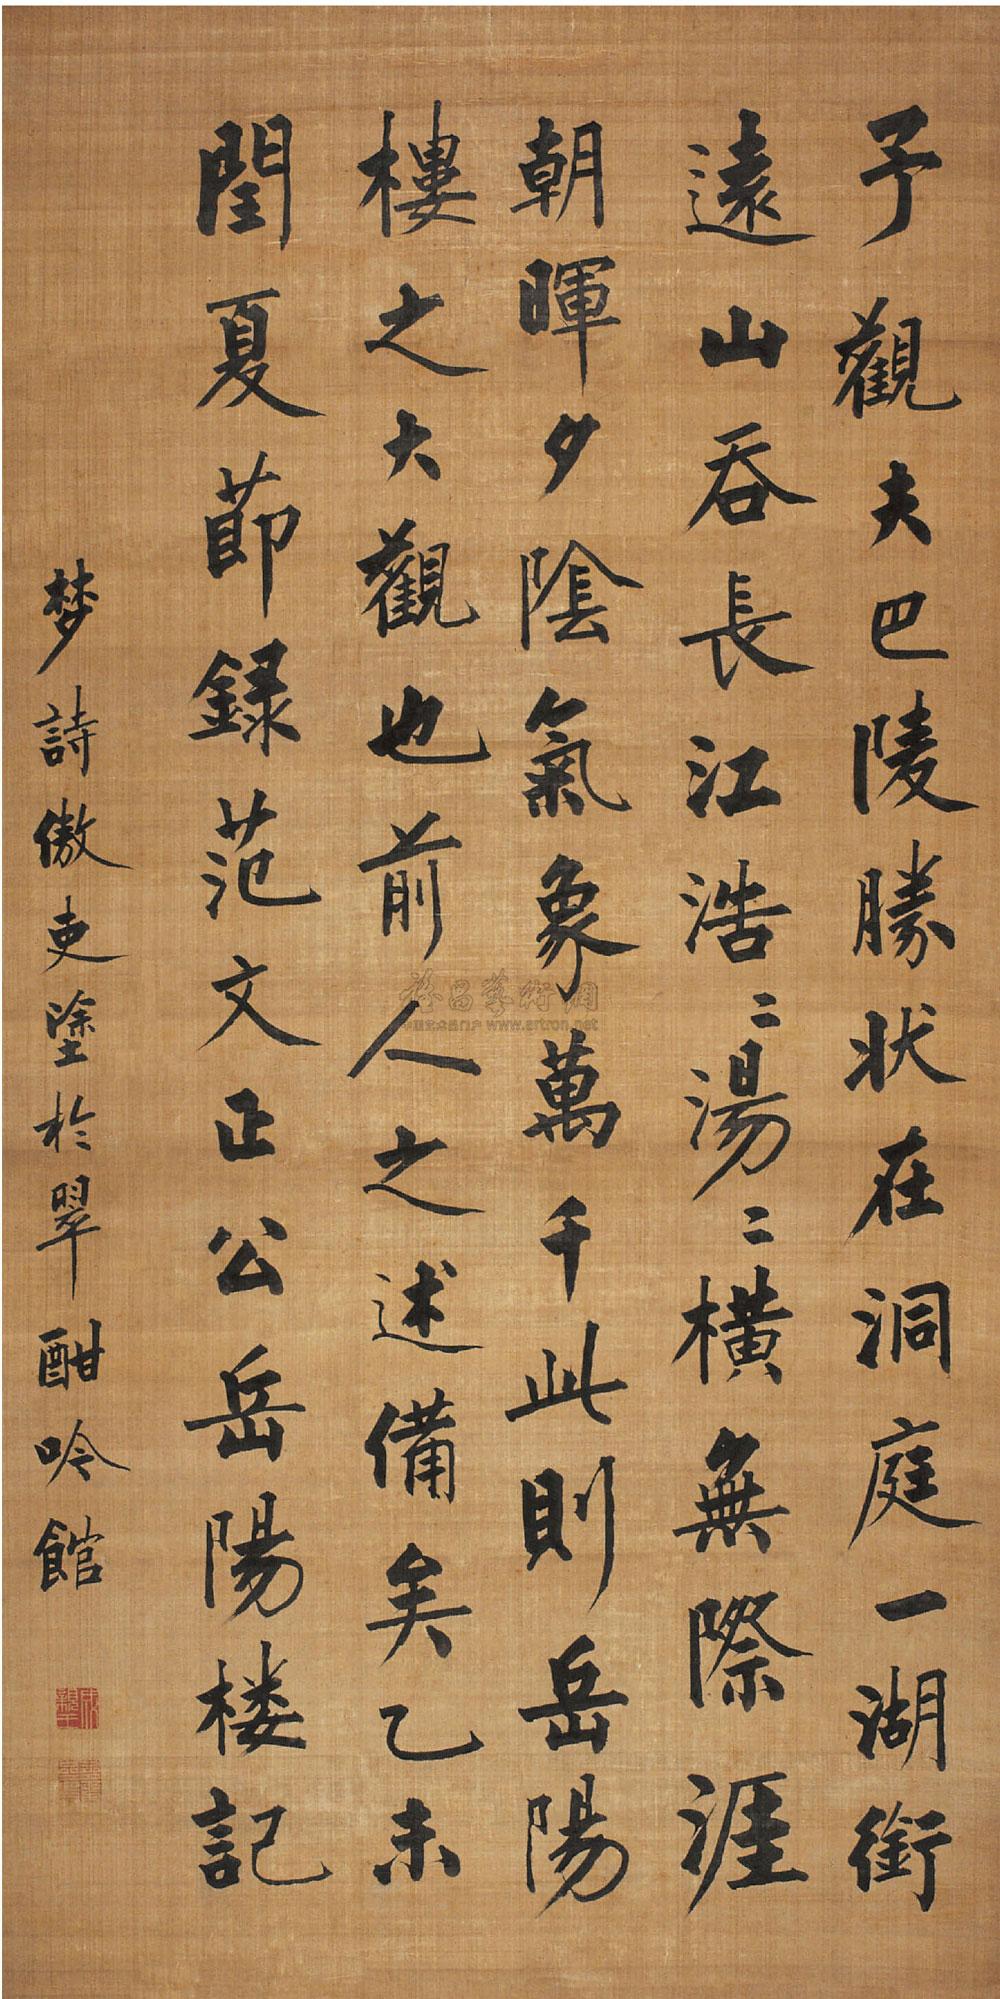 予觀夫巴陵勝状在洞庭一湖銜
遠山吞長江浩〻湯〻橫無際涯
朝暉夕陰氣象萬千此則岳陽
樓之大觀也前人之述備矣乙未
閏夏節録范文正公岳陽楼記
梦詩傲吏塗於翠酣吟館
www.artron.net